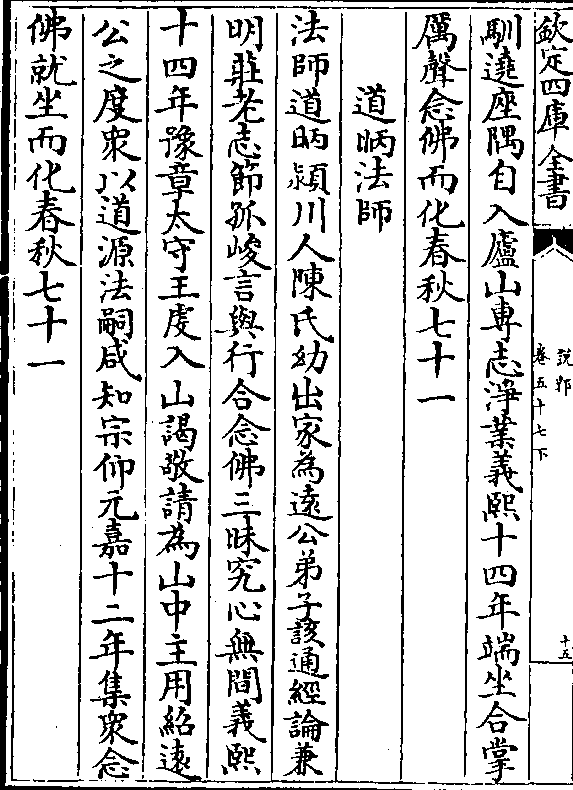 欽定四庫全書
說郛
卷五十七下
十五
馴遶座隅自入廬山專志淨業義熙十四年端坐合掌
厲聲念佛而化春秋七十一
道昞法師
法師道昞潁川人陳氏幼出家為遠公弟子該通經論兼
明莊老志節孤峻言與行合念佛三昧究心無間義熙
十四年豫章太守王虔入山謁敬請為山中主用紹遠
公之度衆以道源法嗣咸知宗仰元嘉十二年集衆念
佛就坐而化春秋七十一